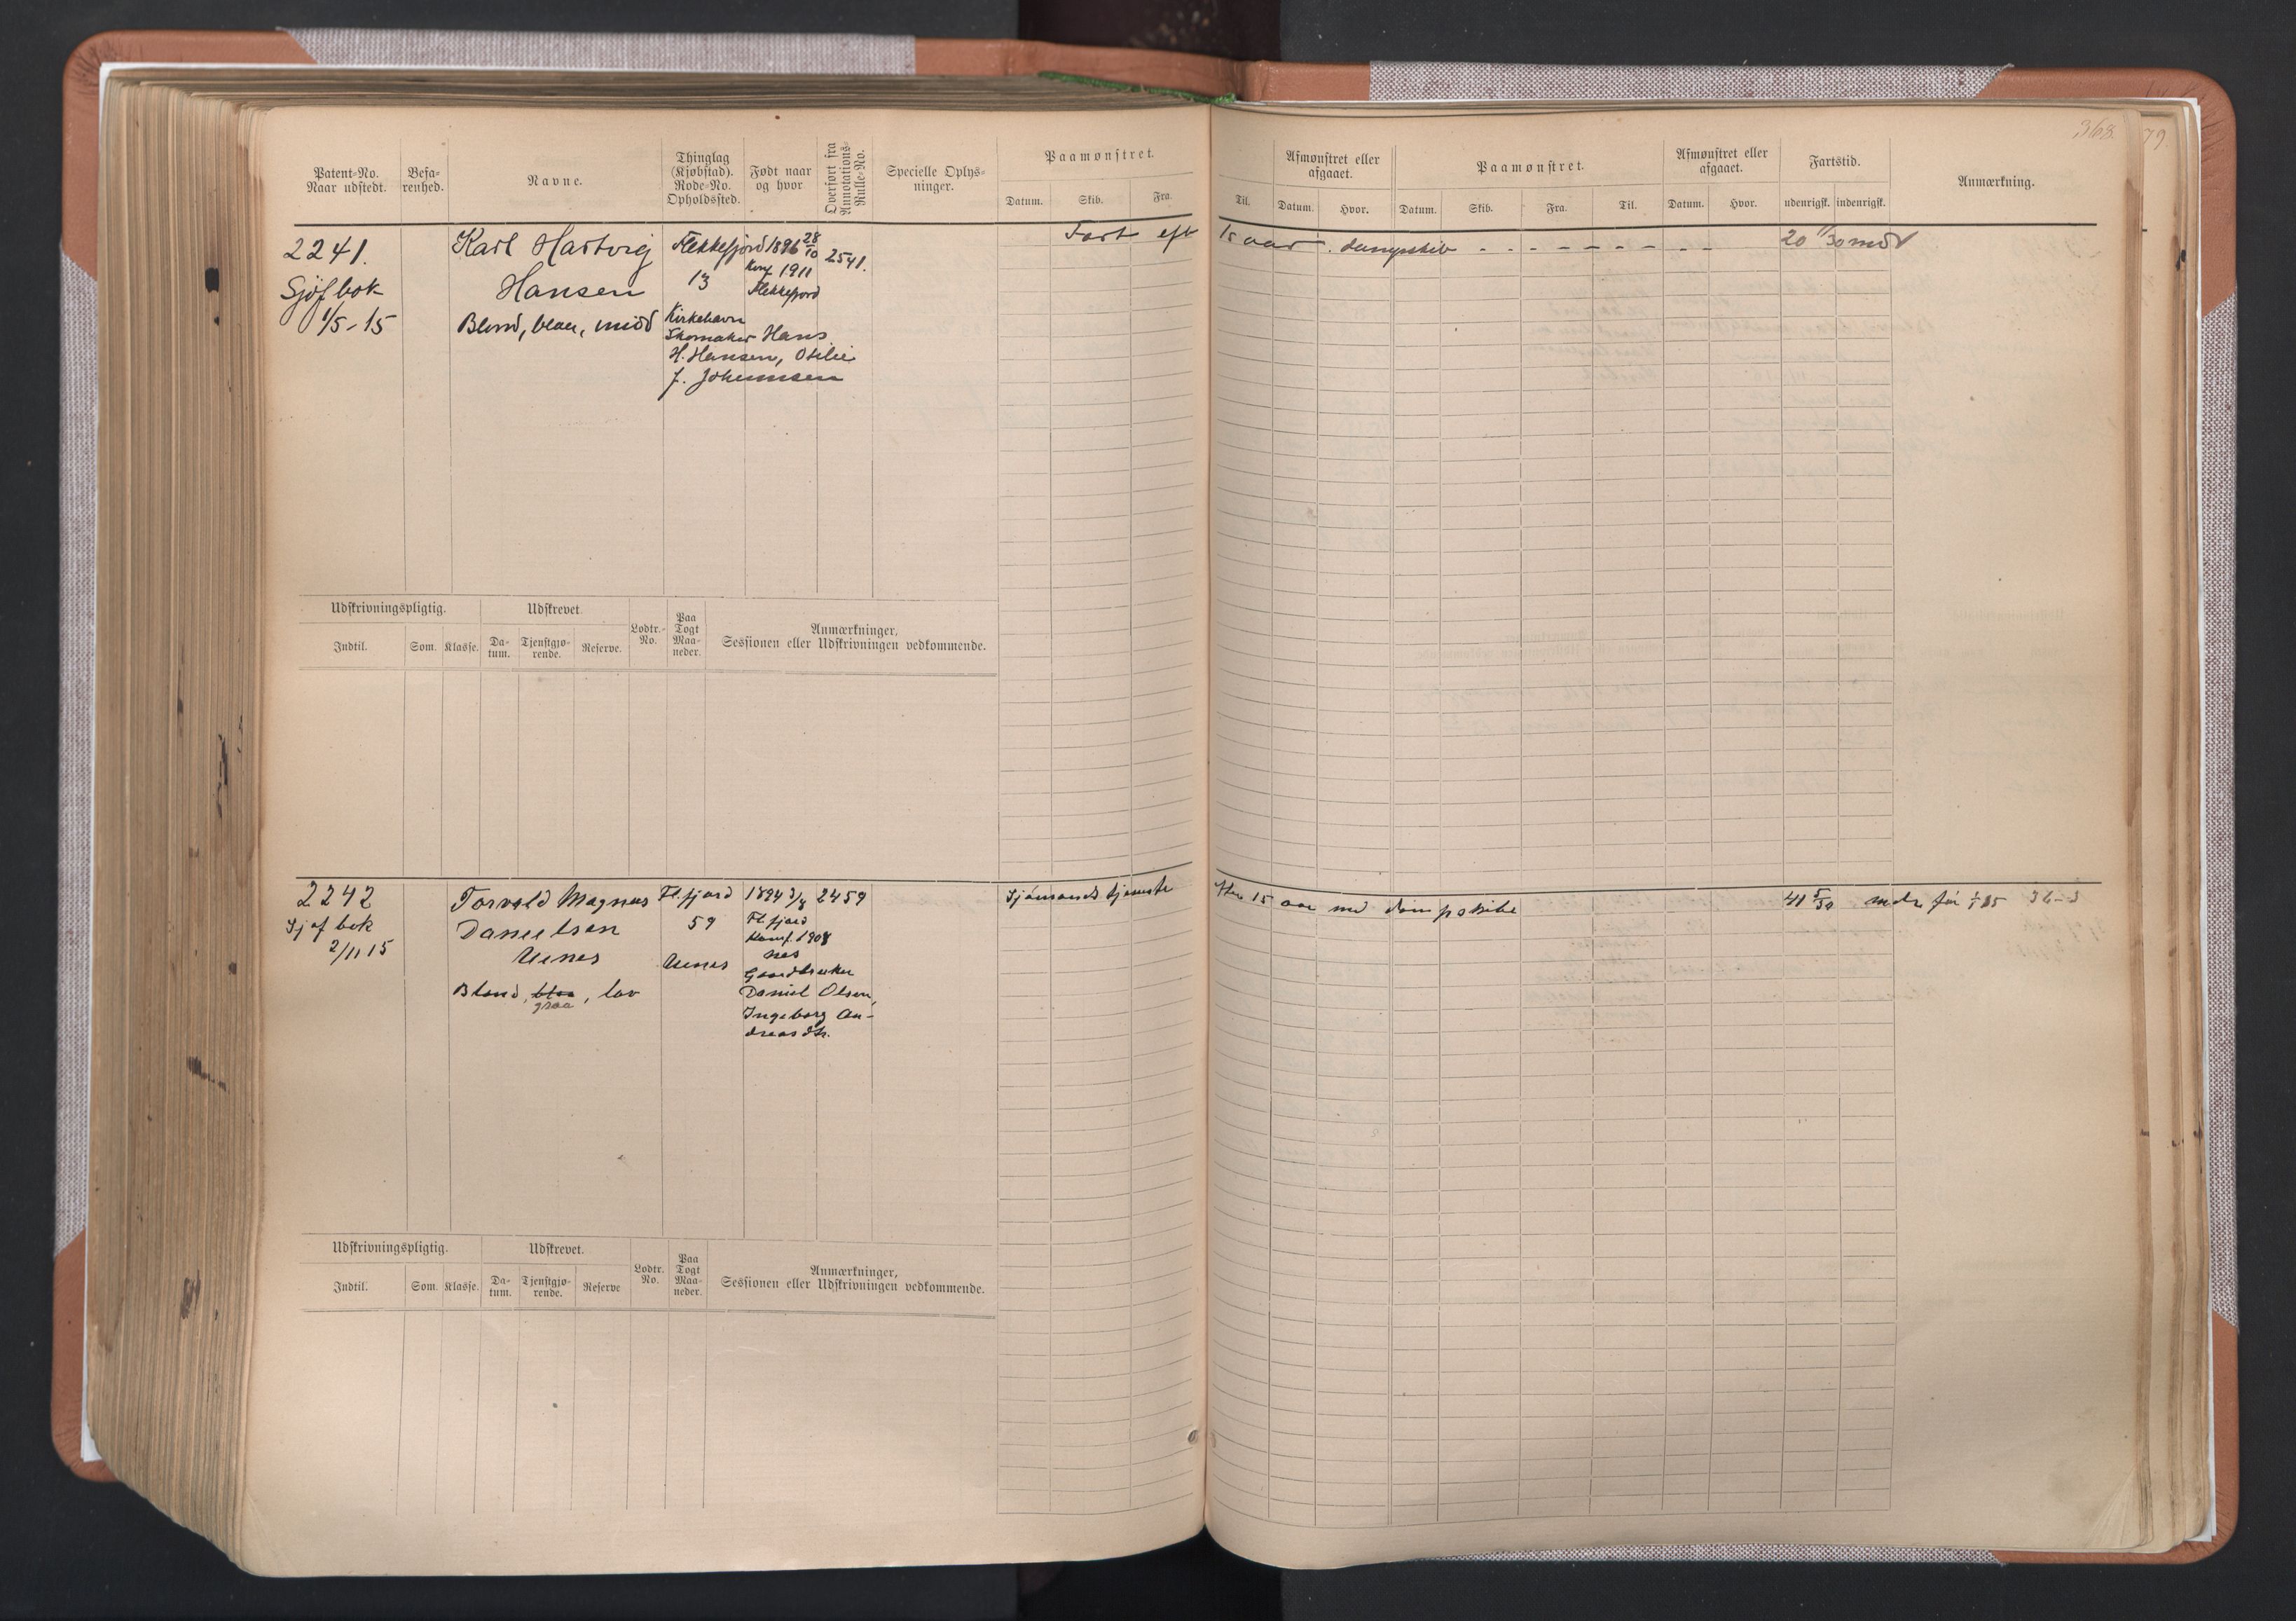 368. 79
Patent-No. Naar udstedt. Befa-renhed. Navne. Thinglag (Kjøbstad). Rode-No. Opholdssted. Født naar og hvor Overført fra Annotations-Rulle-No. Specielle Oplys-ninger. Paamønstret. Datum. Skib. Fra.
Til. Afmønstret eller afgaaet. Datum. Hvor. Paamønstret. Datum. Skib. Fra. Til. Afmønstret eller afgaaet. Datum. Hvor. Fartstid. udenrigsk. indenrigsk. Anmærkning.
2241. Karl Hartvig Flekkefjord 1896 28/10 2541. Fart eft 15 aar. dampskib - - - - - - - - - 20 1/30 mdr
Sjøf bok Hansen 13 Konf 1911 Flekkefjord
1/5-15 Blond, blau, midd Kirkehavn
Skomaker Hans
H. Hansen, Otilie
J. Johannsen
Udskrivningspligtig. Udskrevet. Lodtr.-No. Paa Togt Maa-neder. Anmærkninger, Sessionen eller Udskrivningen vedkommende.
Indtil. Som. Klasse. Da-tum. Tjenstgjø-rende. Reserve.
2242 Torvald Magnus Fl.fjord 1894 3/8 2459 Sjømands tjeneste efter 15 aar med dampskibe 41 5/30 mdr før 1/7 15 36-3
Sj of bok Danielsen 59 Fl.fjord
2/11 15 Konf. 1908
Uenes Uenes nes
Gaardbruker
Blond, blaa, lav Daniel Olsen,
graa
Ingeborg An-
dreasdtr.
Udskrivningspligtig. Udskrevet. Lodtr. No. Paa Togt Maa-neder. Anmærkninger, Sessionen eller Udskrivningen vedkommende.
Indtil. Som. Klasse. Da-tum. Tjenstgjø-rende. Reserve